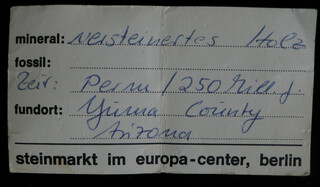 mineral: versteinertes Holz
fossil:
Zeit: Perm / 250 Mill. J.
fundort: Yuma County
Arizona
steinmarkt im europa-center, berlin